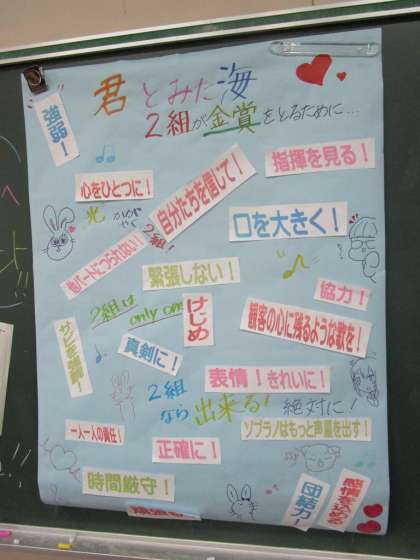 君とみた海
2組が金賞をとるために…
強弱!
指揮を見る!
心をひとつに!
自分たちを信じて!
光かがやく2組!
口を大きく!
他パートにつられない!
緊張しない!
協力!
2組は only one
けじめ
観客の心に残るような歌を!
真剣に!
表情!きれいに!
2組なら出来る!絶対に!
一人一人の責任!
正確に!
ソプラノはもっと声量を出す!
時間厳守!
団結力!
感情を込める